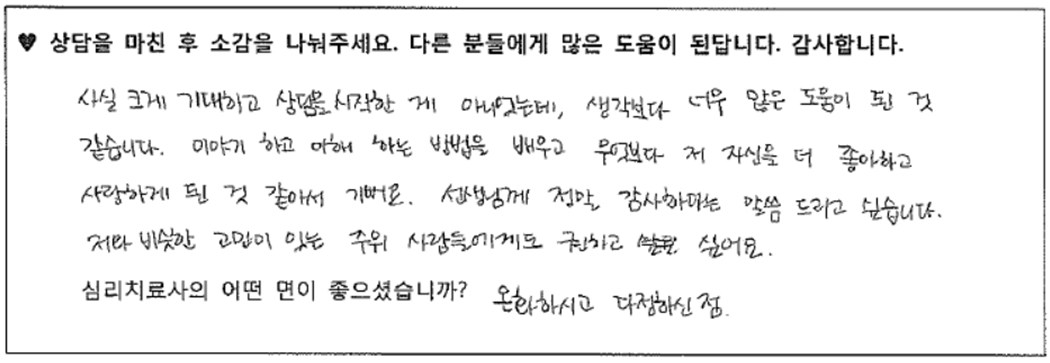 ♥ 상담을 마친 후 소감을 나눠주세요. 다른 분들에게 많은 도움이 된답니다. 감사합니다.
사실 크게 기대하고 상담을 시작한 게 아니었는데, 생각보다 너무 많은 도움이 된 것
같습니다. 이야기 하고 이해 하는 방법을 배우고 무엇보다 저 자신을 더 좋아하고
사랑하게 된 것 같아서 기뻐요. 선생님께 정말 감사하다는 말씀 드리고 싶습니다.
저와 비슷한 고민이 있는 주위 사람들에게도 권하고 싶어요.
심리치료사의 어떤 면이 좋으셨습니까? 온화하시고 다정하신 점.